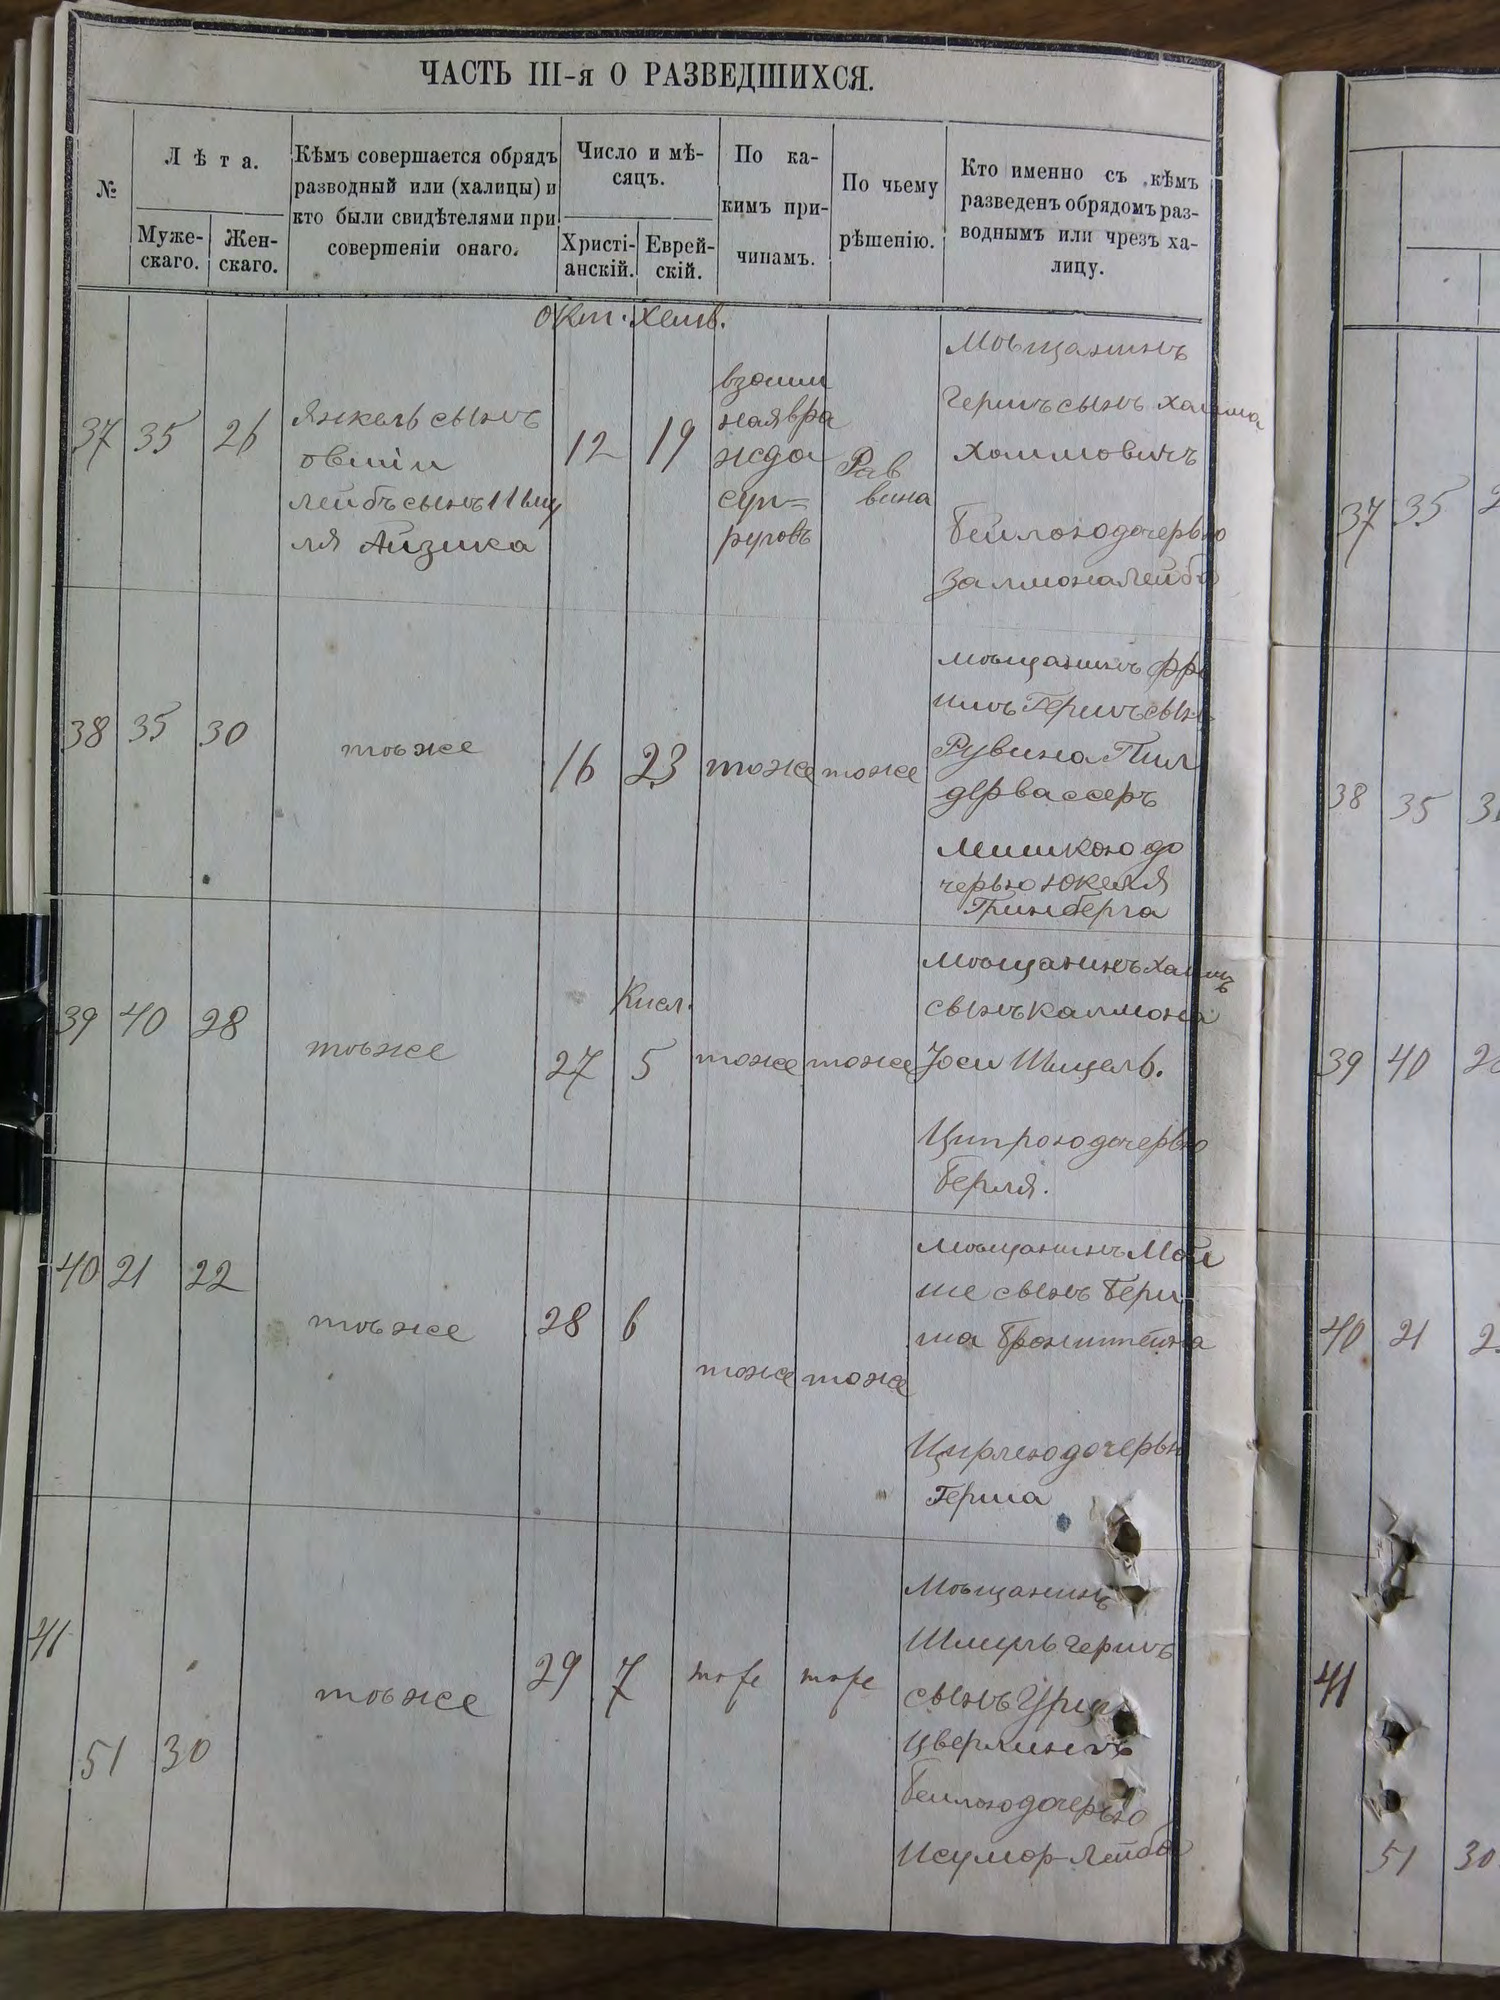 ЧАСТЬ III-я О РАЗВЕДШИХСЯ.
№
Лѣта.
Муже-
скаго.
Жен-
скаго.
Кѣмъ совершается обрядъ
разводный или (халицы) и
кто были свидѣтелями при
совершеніи онаго.
Число и мѣ-
сяцъ.
Христі-
анскій.
Еврей-
скій.
По ка-
кимъ при-
чинамъ.
По чьему
рѣшенію.
Кто именно съ кѣмъ
разведенъ обрядомъ раз-
воднымъ или чрезъ ха-
лицу.
Окт. Хешв.
37 35 26
Янкель сынъ
Овшіи
Лейбъ сынъ Шму
ля Айзика
12 19
взаим
ная вра
жда
суп=
руговъ
Рав
вина
Мѣщанинъ
Гершъ сынъ Хаима
Хаимовичъ
Бейлою дочерью
Залмона Лейба
38 35 30
тѣже
16 23
тоже тоже
мѣщанинъ Фро
имъ Гершъ сынъ
Рувина Пил
дервассеръ
Мишкою до
черью Юкеля
Гринберга
39 40 28
тѣже
Кисл.
27 5
тоже тоже
Мѣщанинъ Хаимъ
сынъ Калмона
Іоси
Ципрою дочерью
Берля.
40 21 22
тѣже
28 6
тоже тоже
Мѣщанинъ Мой
ше сынъ Гер
ша Бронштейна
Цирлею дочерью
Герша
41
51 30
тѣже
29 7
тоже тоже
Мѣщанинъ
Шмуль Гершъ
сынъ
Цверлингъ
Бейлою дочерью
Лейба
37 35 2
38 35 3
39 40 2
40 21 2
41
51 30